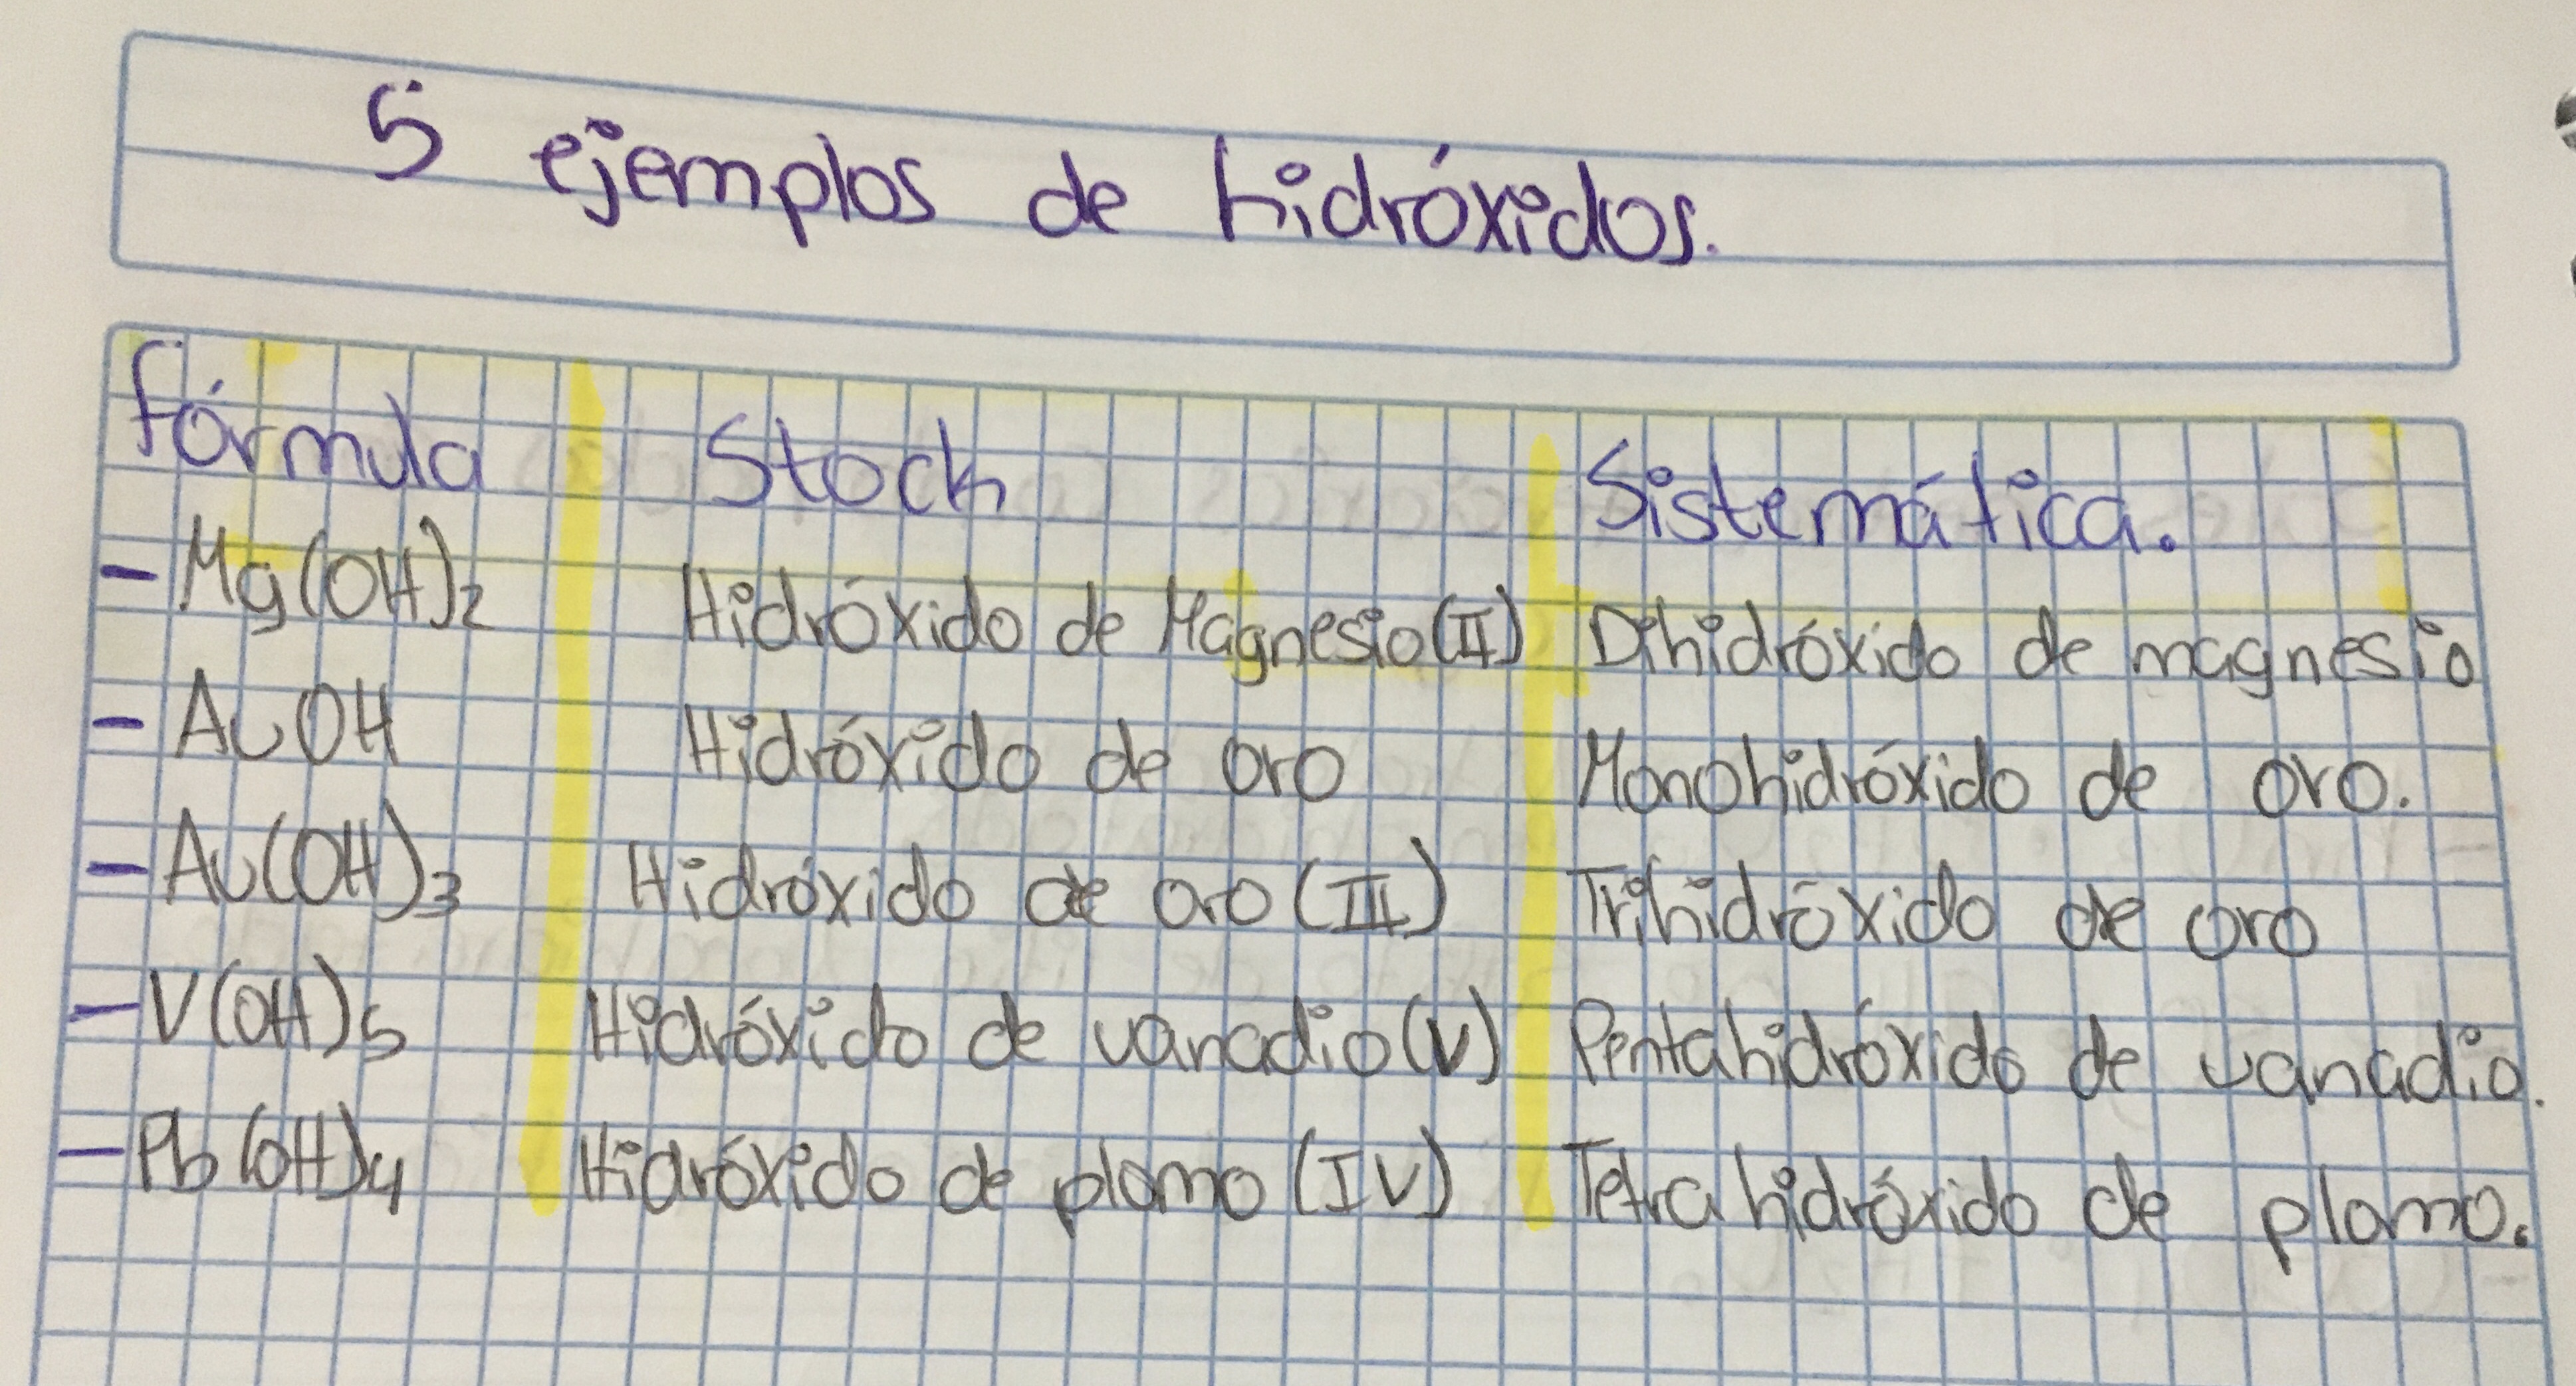 5 ejemplos de hidróxidos.
fórmula Stock Sistemática.
- Mg(OH)2 Hidróxido de Magnesio (II) Dihidróxido de magnesio
- AuOH Hidróxido de oro Monohidróxido de oro.
- Au(OH)3 Hidróxido de oro (III) Trihidróxido de oro
- V(OH)5 Hidróxido de vanadio (V) Pentahidróxido de vanadio.
- Pb(OH)4 Hidróxido de plomo (IV) Tetrahidróxido de plomo.